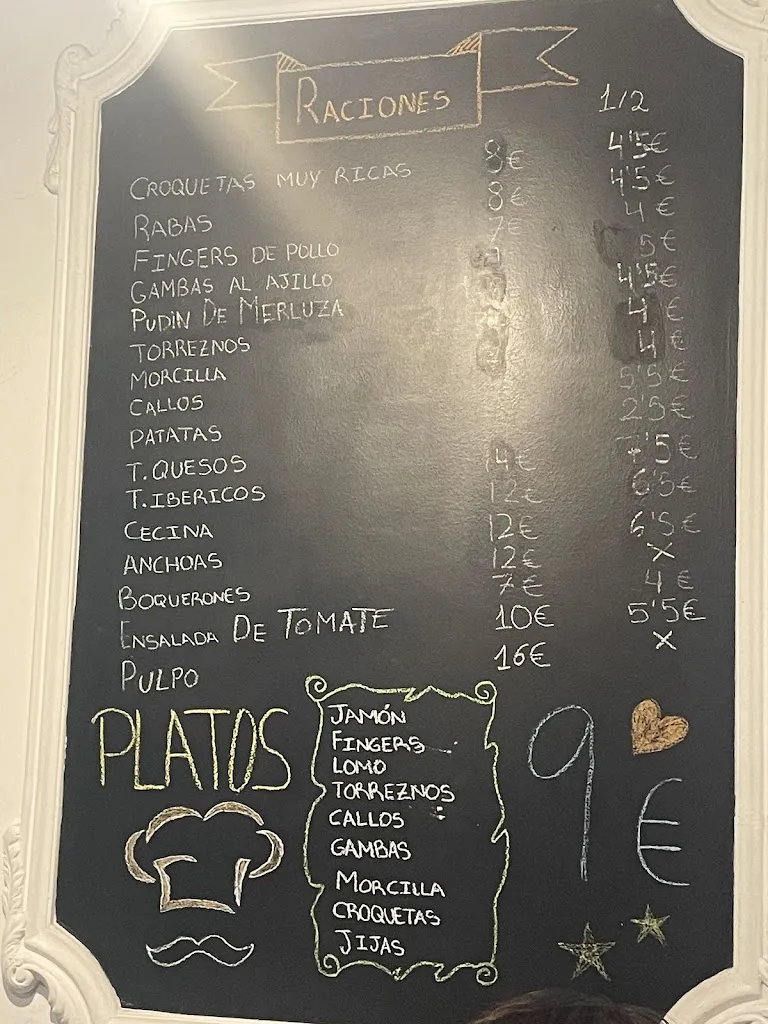 RACIONES
1/2
CROQUETAS MUY RICAS 8€ 4'5€
RABAS 8€ 4'5€
FINGERS DE POLLO 7€ 4€
GAMBAS AL AJILLO 5€
PUDIN DE MERLUZA 4'5€
TORREZNOS 4€
MORCILLA 4€
CALLOS 5'5€
PATATAS 2'5€
T. QUESOS 14€ 7'5€
T. IBERICOS 12€ 6'5€
CECINA 12€ 6'5€
ANCHOAS 12€ X
BOQUERONES 7€ 4€
ENSALADA DE TOMATE 10€ 5'5€
PULPO 16€ X
PLATOS
JAMÓN
FINGERS
LOMO
TORREZNOS
CALLOS
GAMBAS
MORCILLA
CROQUETAS
JIJAS
9€